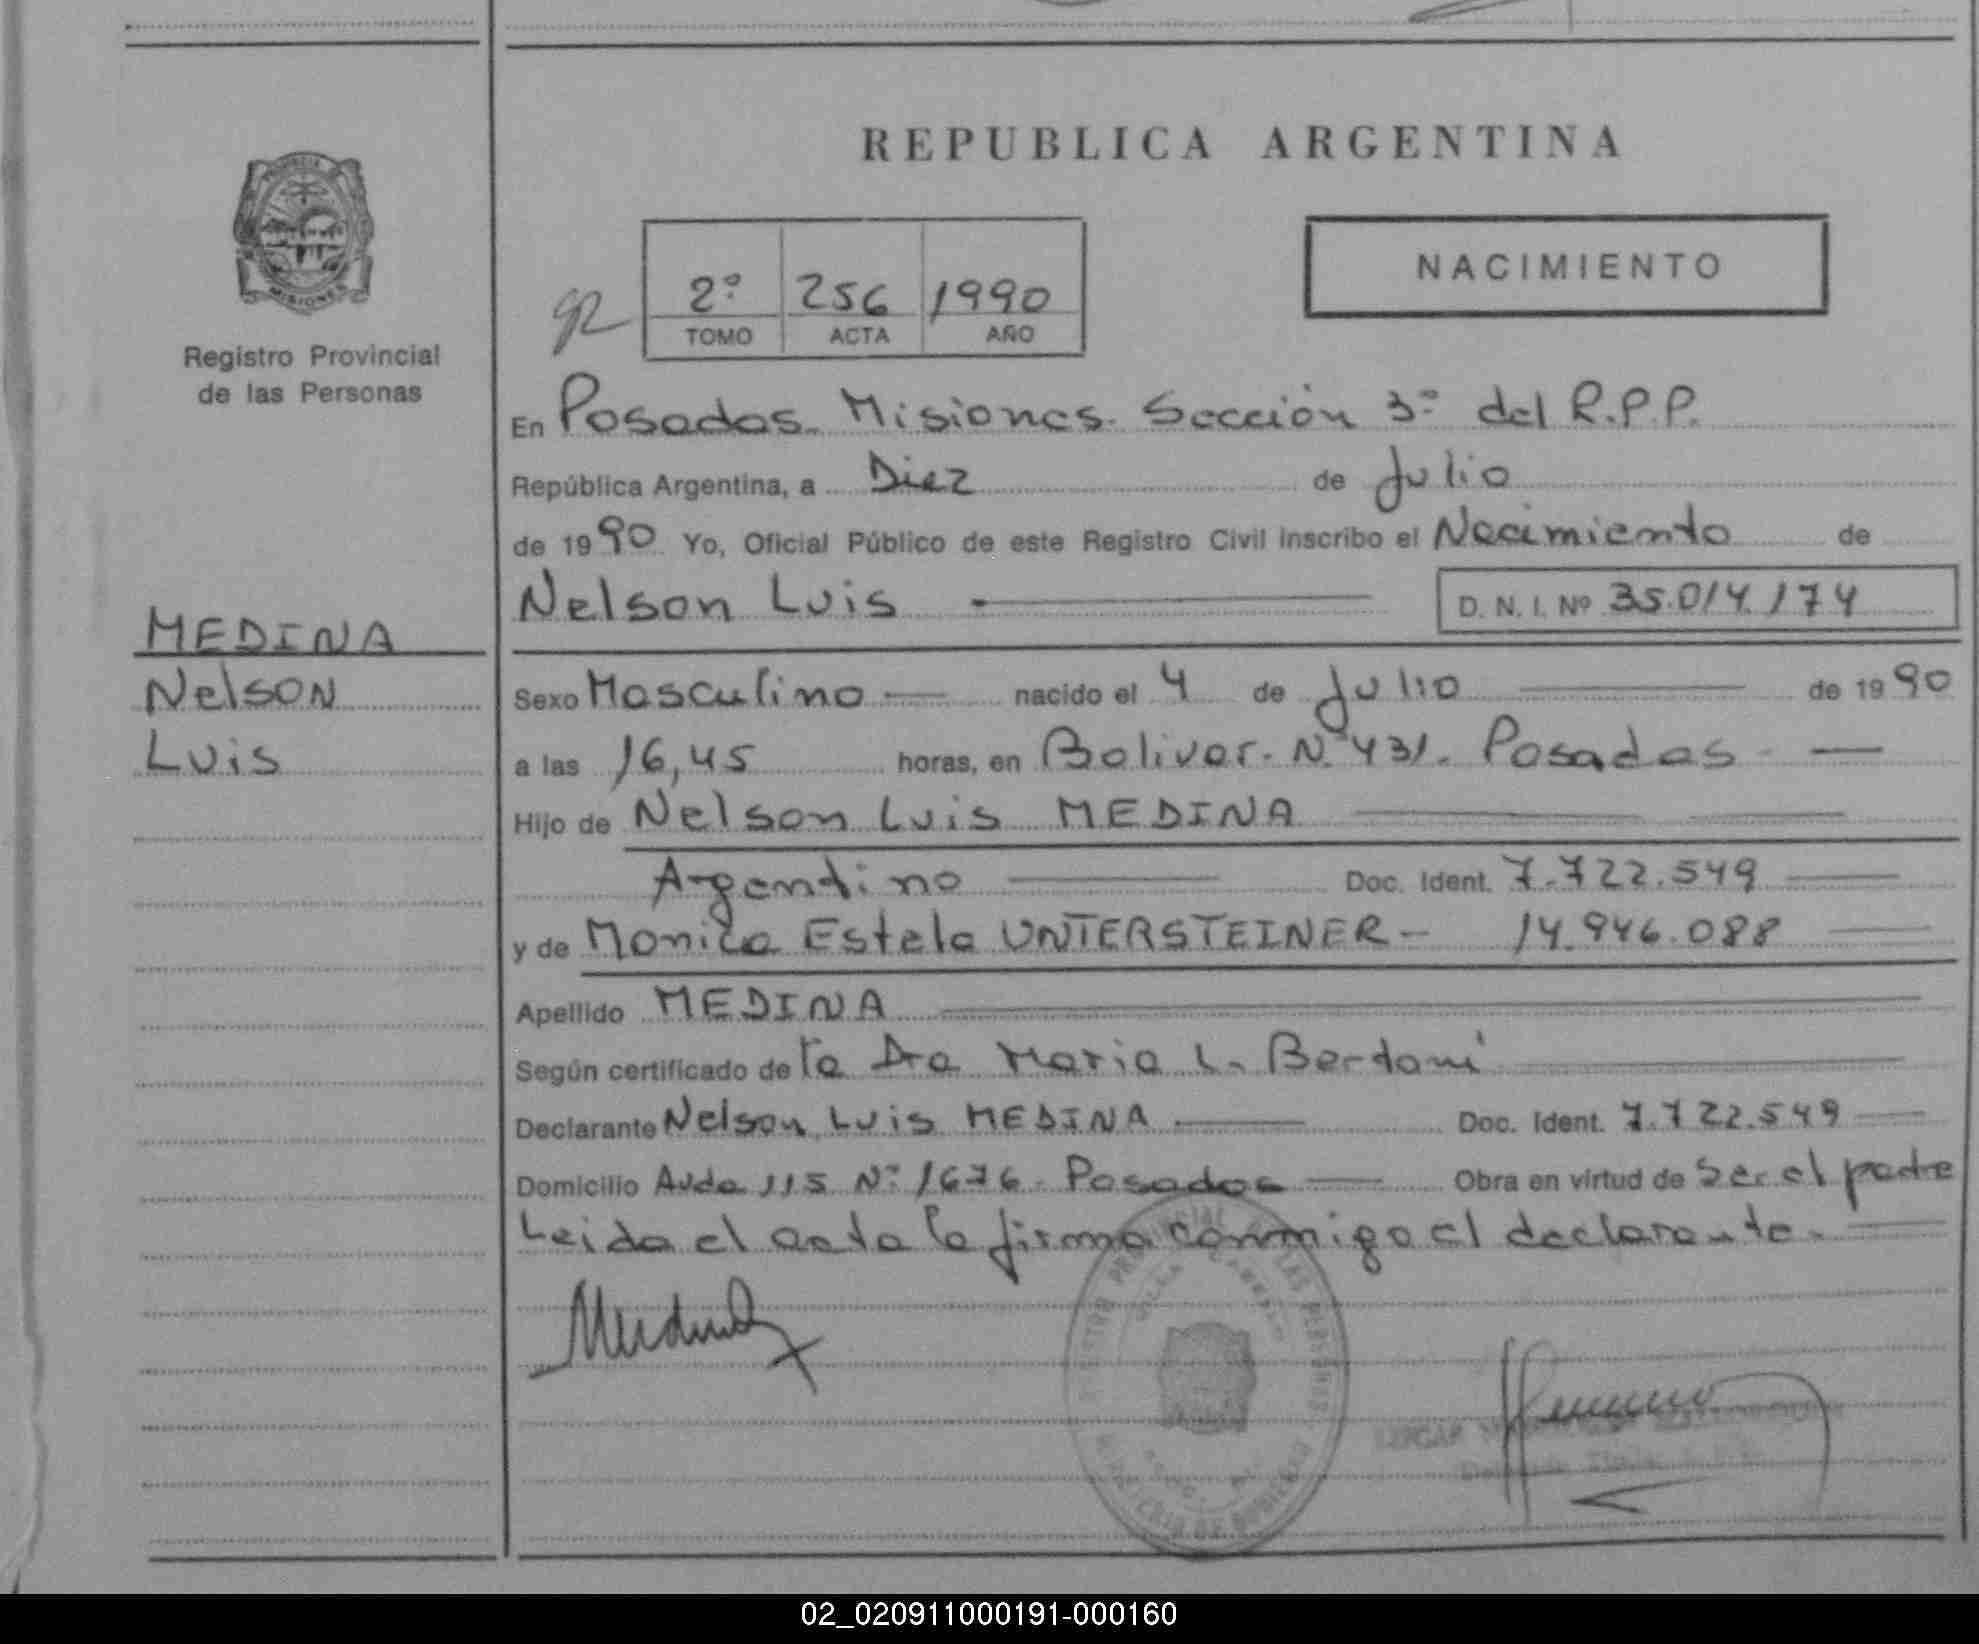 REPUBLICA ARGENTINA
NACIMIENTO
2º 256 1990
TOMO ACTA AÑO
PROVINCIA
MISIONES
Registro Provincial
de las Personas
MEDINA
Nelson
Luis
En Posadas. Misiones. Sección 3º del R.P.P.
República Argentina, a Diez de Julio
de 1990 Yo, Oficial Público de este Registro Civil inscribo el Nacimiento de
Nelson Luis D. N. I. Nº 35.014.174
Sexo Masculino nacido el 4 de Julio de 1990
a las 16,45 horas, en Bolivar. Nº 431. Posadas
Hijo de Nelson Luis MEDINA
Argentino Doc. Ident. 7.722.549
y de Monica Estela UNTERSTEINER - 14.946.088
Apellido MEDINA
Según certificado de la Dra Maria L. Bertoni
Declarante Nelson Luis MEDINA Doc. Ident. 7.722.549
Domicilio Avda 115 Nº 1676. Posadas Obra en virtud de ser el padre
Leida el acta la firma conmigo el declarante.
02_020911000191-000160